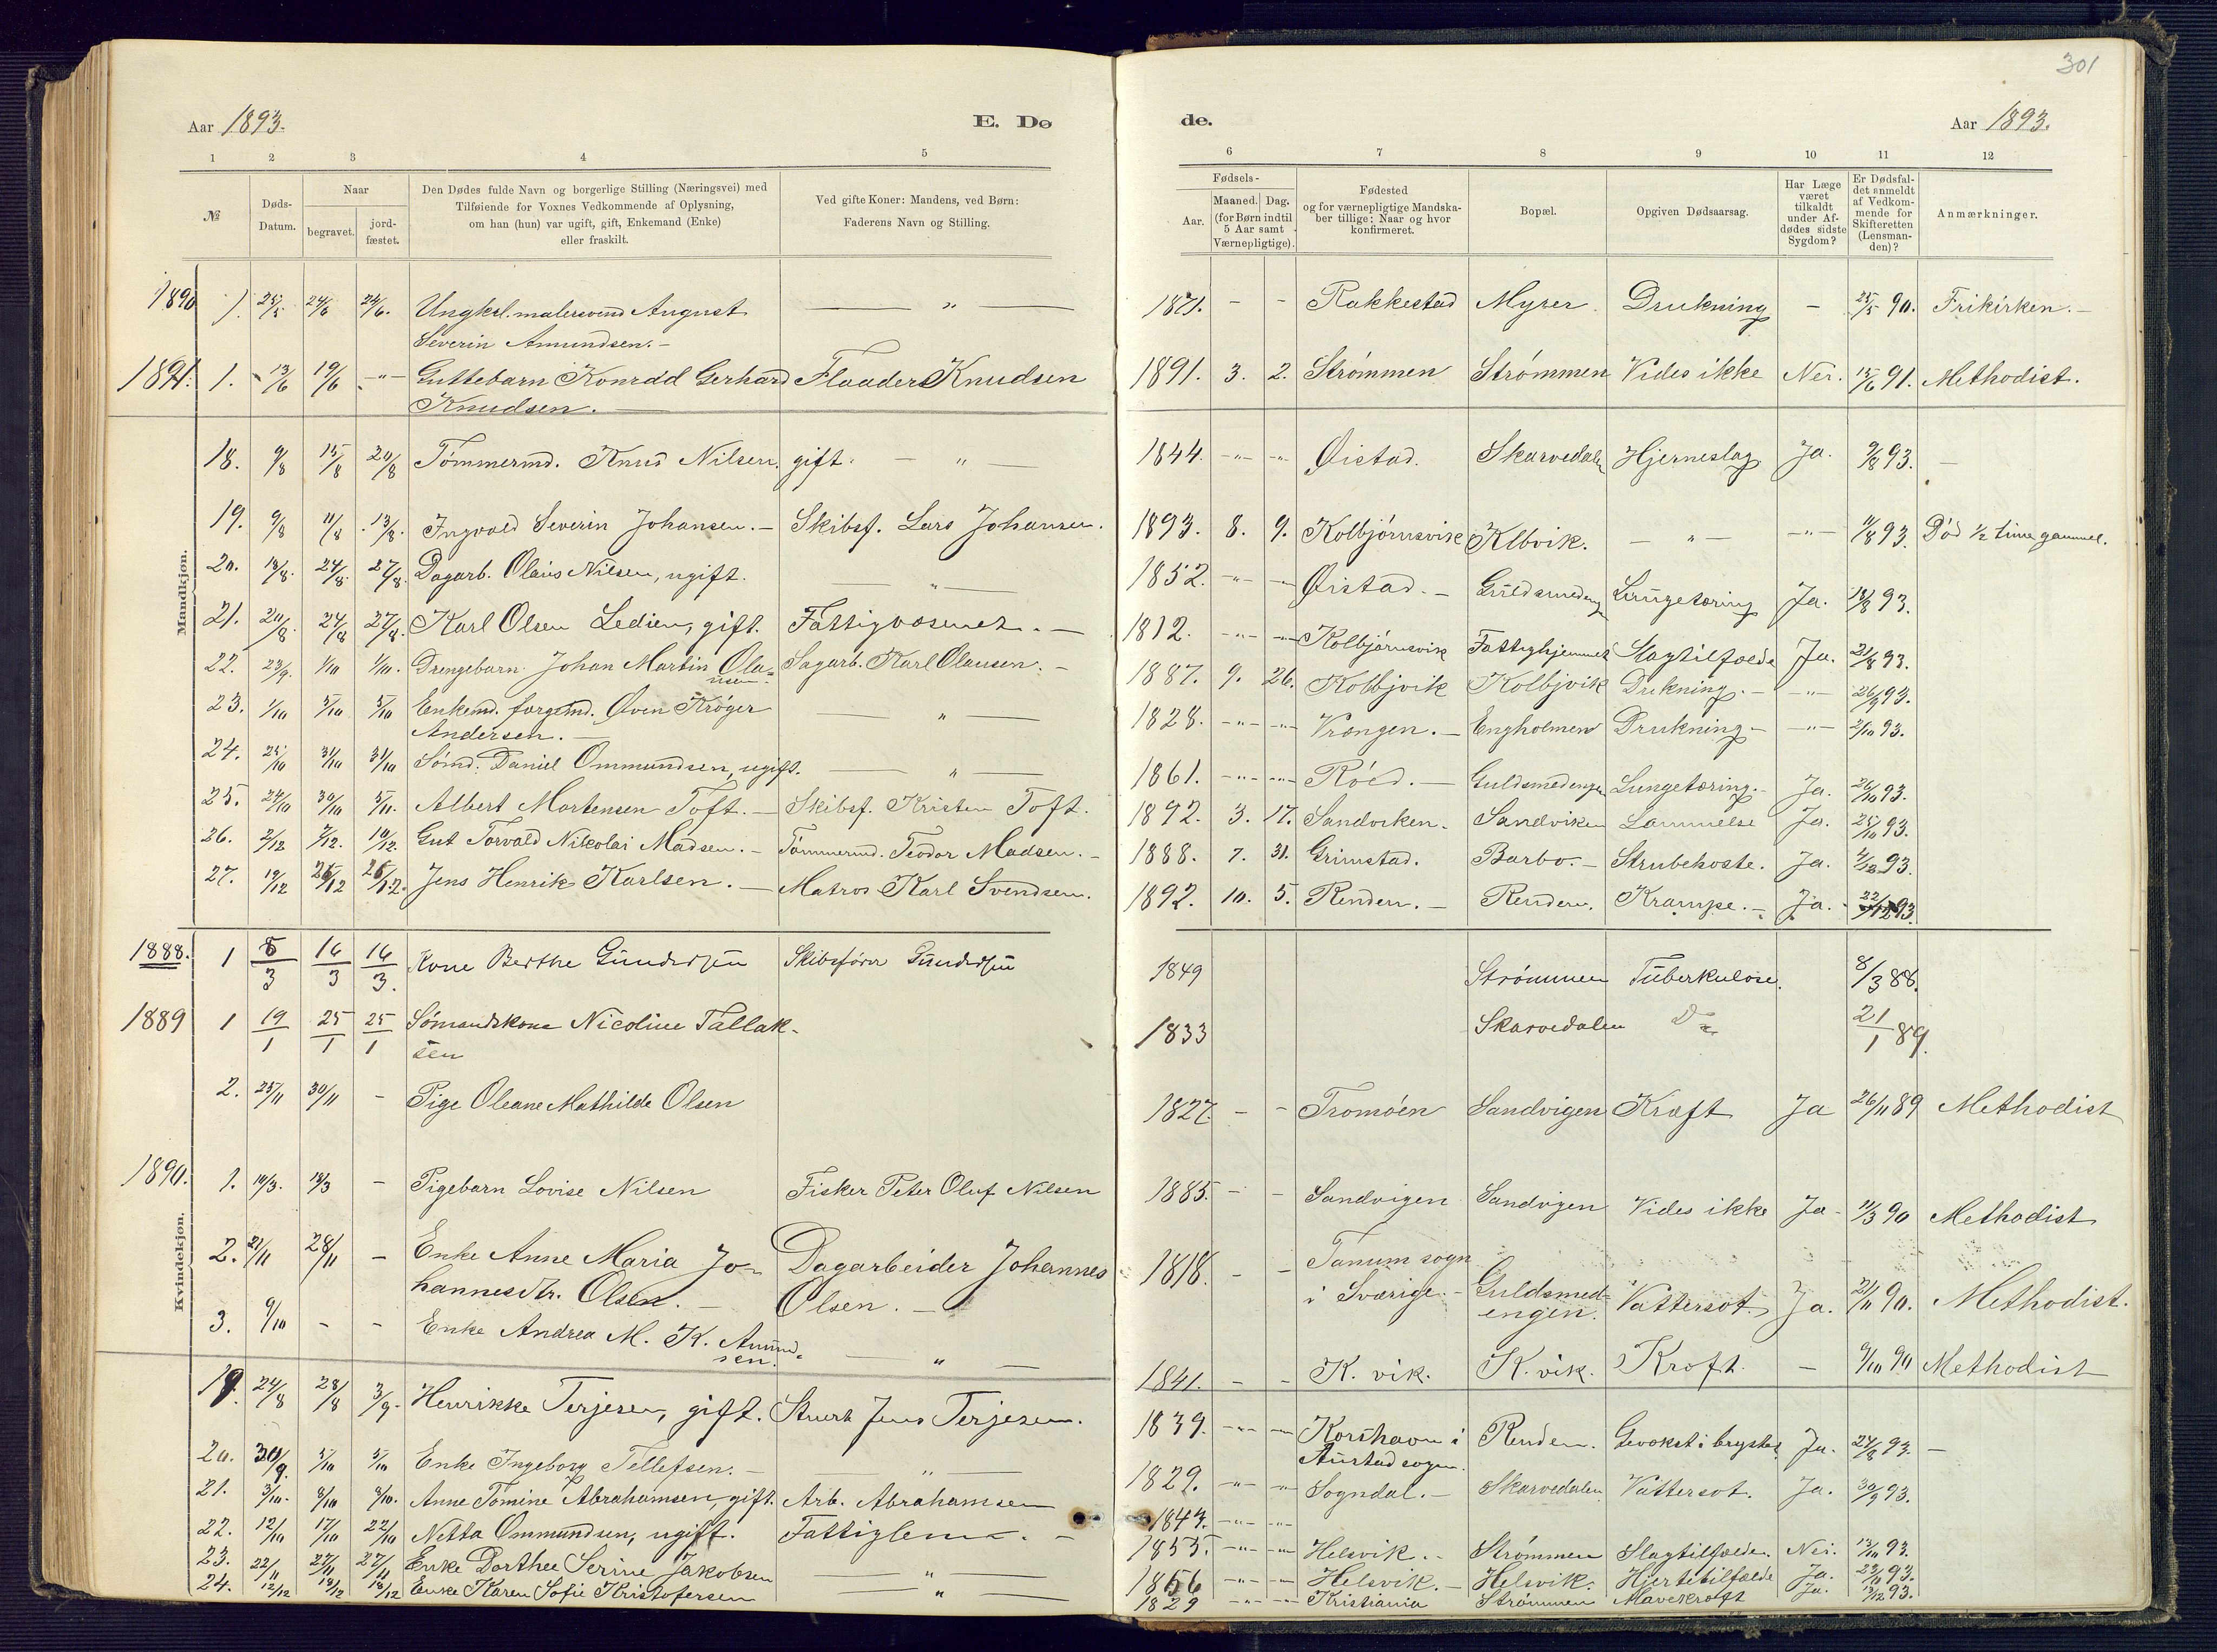 301
Aar 1893.
E. Dø
de.
Aar 1893.
1 2 3 4 5
6 7 8 9 10 11 12
№
Døds-
Datum.
Naar
begravet.
jord-
fæstet.
Den Dødes fulde Navn og borgerlige Stilling (Næringsvei) med
Tilføiende for Voxnes Vedkommende af Oplysning,
om han (hun) var ugift, gift, Enkemand (Enke)
eller fraskilt.
Ved gifte Koner: Mandens, ved Børn:
Faderens Navn og Stilling.
Fødsels-
Aar.
Maaned. Dag.
(for Børn indtil
5 Aar samt
Værnepligtige).
Fødested
og for værnepligtige Mandska-
ber tillige: Naar og hvor
konfirmeret.
Bopæl.
Opgiven Dødsaarsag.
Har Læge
været
tilkaldt
under Af-
dødes sidste
Sygdom?
Er Dødsfal-
det anmeldt
af Vedkom-
mende for
Skifteretten
(Lensman-
den)?
Anmærkninger.
Mandkjøn.
1890 1. 25/5 24/6 24/6. Ungkrl. malersvend August — " — 1871. - - Rakkestad Myrer. Drukning — 25/5 90. Frikirken. —
Severin Amundsen. —
1891. 1. 13/6 19/6 -"- Guttebarn Konrad Gerhard Flaader Knudsen 1891. 3. 2. Strømmen Strømmen Vides ikke Nei. 15/6 91. Methodist.
Knudsen. —
18. 9/8 15/8 20/8 Tømmermd. Knud Nilsen, gift. — " — 1844. -"- -"- Øistad. Skarvedalen Hjerneslag Ja. 9/8 93. —
19. 9/8 11/8 13/8. Ingvald Severin Johansen. — Skibsf. Lars Johansen. 1893. 8. 9. Kolbjørnsvik Klbvik. — " — -"- 11/8 93. Død ½ time gammel.
20. 18/8. 24/8. 27/8. Dagarb. Olaus Nilsen, ugift. — " — 1852. -"- -"- Øistad. — Guldsmedeng Lungetæring Ja. 18/8 93.
21. 20/8. 24/8 27/8. Karl Olsen Ledien, gift. Fattigvæsenet. — 1812. -"- -"- Kolbjørnsvik Fattighjemmet Slagtilfælde Ja. 21/8 93.
22. 23/9. 1/10 1/10. Drengebarn Johan Martin Ola= Sagarb. Karl Olausen. — 1887. 9. 26. Kolbjvik Kolbjvik Drukning. — -"- 26/9 93.
usen.
23. 1/10 5/10 5/10 Enkemd. færgemd. Even Krøger — " — 1828. -"- -"- Vrængen. — Engholmen Drukning — -"- 2/10 93.
Andersen. —
24. 25/10 31/10 31/10 Sømd. Daniel Ommundsen, ugift. — " — 1861. -"- -"- Røed. — Guldsmedengen Lungetæring. — Ja. 26/10 93.
25. 24/10 30/10 5/11. Albert Mortensen Toft. — Skibsf. Kristen Toft. 1892. 3. 17. Sandviken. Sandviken Lammelse Ja. 25/10 93.
26. 2/12 7/12. 10/12. Gut Torvald Nikolai Madsen. — Tømmermd. Teodor Madsen. — 1888. 7. 31. Grimstad. Barbo. — Strubehoste. Ja. 4/12 93.
27. 19/12 26/12 26/12. Jens Henrik Karlsen. — Matros Karl Svendsen. 1892. 10. 5. Renden. — Renden. Krampe. — Ja. 22/12 93.
Kvindekjøn.
1888. 1 8/3 16/3 16/3. Kone Berthe Gundersen Skibsfører Gundersen 1849 Strømmen Tuberkulose. 8/3 88.
1889 1 19/1 25/1 25/1 Sømandskone Nicoline Tallak- 1833 Skarvedalen Do 21/1 89.
sen
2. 25/11 30/11 - Pige Oleane Mathilde Olsen 1827. - - Tromøen Sandvigen Kræft Ja 26/11 89 Methodist
1890. 1. 10/3. 18/3 - Pigebarn Lovise Nilsen Fisker Peter Oluf Nilsen 1885. - - Sandvigen Sandvigen Vides ikke Ja - 11/3 90 Methodist
2. 21/11 28/11 - Enke Anne Maria Jo- Dagarbeider Johannes 1818. - - Tanum sogn
hannesdtr. Olsen. — Olsen. — i Sverige. — Guldsmed- Vattersot. Ja. 21/11 90. Methodist.
engen.
3. 9/10 - - Enke Andrea M. K. Amund- — " — 1841. - - K. vik. K. vik. Kræft. — 9/10 90 Methodist
sen.
19. 24/8 28/8 3/9. Henrikke Terjesen, gift. Stuert Jens Terjesen. 1839. -"- -"- Korshavn i Renden. Gevækst i brystet Ja. 24/8 93. —
Austad sogn.
20. 30/9. 5/10 5/10 Enke Ingeborg Tellefsen. — — " — 1829. -"- -"- Sogndal. — Skarvedalen Vattersot. Ja. 30/9 93.
21. 3/10. 8/10 8/10. Anne Tomine Abrahamsen, gift. Arb. Abrahamsen 1843. -"- -"-
22. 12/10 17/10 22/10 Netta Ommundsen, ugift. Fattiglem. — 1855. -"- -"- Helsvik. — Strømmen Slagtilfælde. Nei. 13/10 93.
23. 22/11 27/11 27/11 Enke Dorthea Serine Jakobsen — " — 1856 -"- -"- Helsvik. — Helsvik. Hjertetilfælde Ja. 23/11 93.
24. 12/12 18/12 18/12 Enke Karen Sofie Kristofersen — " — 1829 -"- -"- Kristiania Strømmen Mavekræft Ja. 13/12 93.